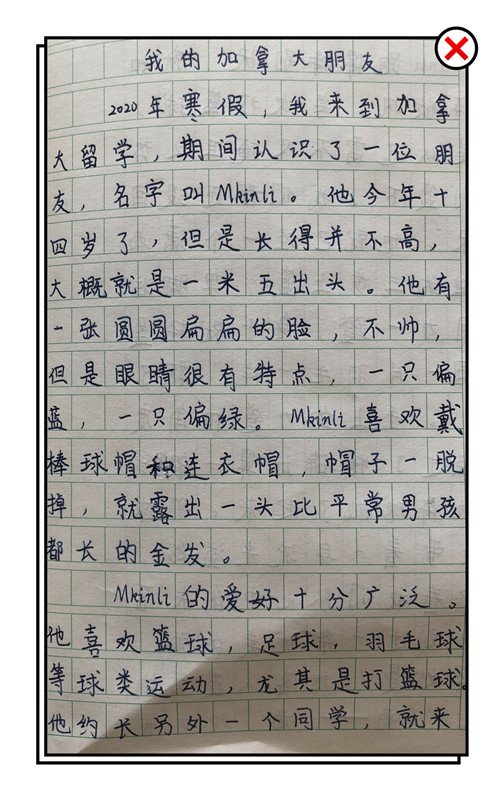 我的加拿大朋友
2020年寒假，我来到加拿
大留学，期间认识了一位朋
友，名字叫Mkinli。他今年十
四岁了，但是长得并不高，
大概就是一米五出头。他有
一张圆圆扁扁的脸，不帅，
但是眼睛很有特点，一只偏
蓝，一只偏绿。Mkinli喜欢戴
棒球帽和连衣帽，帽子一脱
掉，就露出一头比平常男孩
都长的金发。
Mkinli的爱好十分广泛。
他喜欢篮球，足球，羽毛球
等球类运动，尤其是打篮球。
他约长另外一个同学，就来